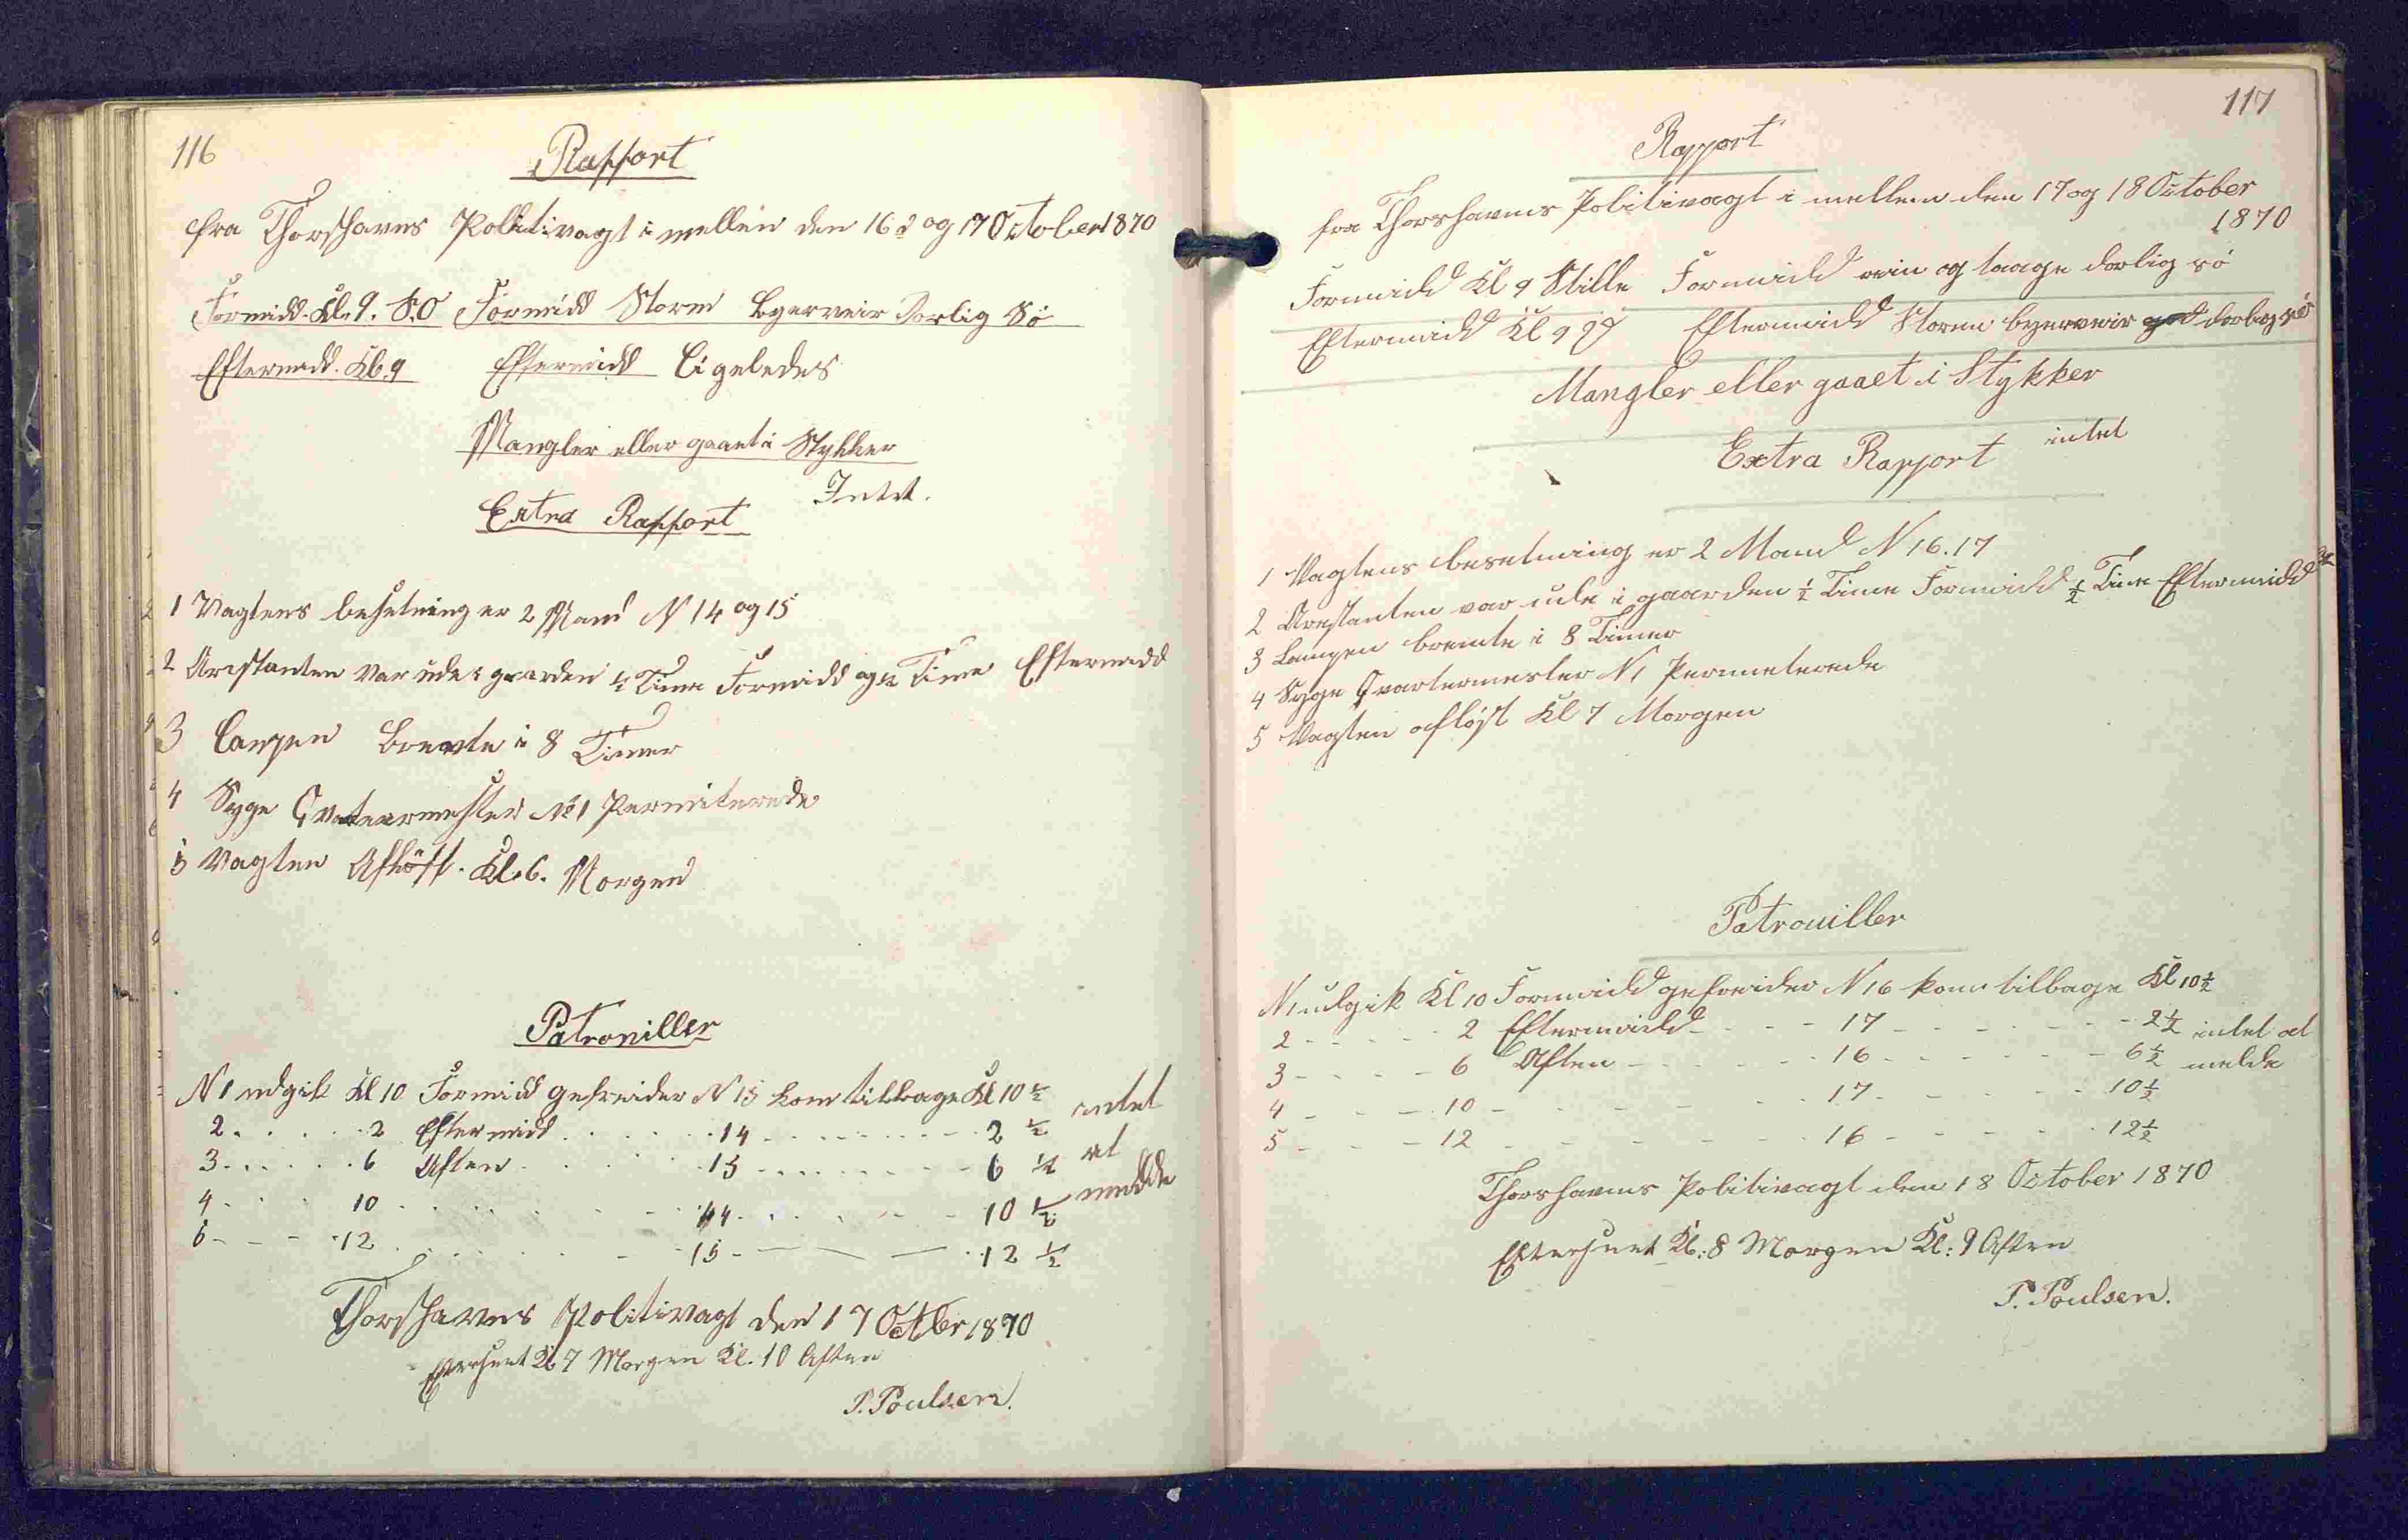 116
Rapport
fra Thorshavns Politivagt i mellem den 16 og 17 October 1870
Formidd. Kl. 9. S.O Formidd Storm Byerveir Dorlig Sö
Eftermidd. Kl. 9 Eftermidd Ligeledes
Mangler eller gaaet i Stykker
Intet.
Extra Rapport
1 Vagtens besetning er 2 Mand N 14 og 15
2 Arestanten var ude i gaarden ½ Time Formidd og ½ Time Eftermidd
3 Lampen Brente i 8 Timer
4 Syge Qvatermester No 1 Permiterede
5 Vagten Aflöst. Kl. 6. Morgen
Patrouiller
N 1 udgik Kl 10 Formidd gefreider N 15 kom tilbage Kl 10 ½
2 . . . . . 2 Eftermidd . . . . . 14 - - - - - - 2 ½ intet
3 . . . . . 6 Aften . . . . . 15 - - - - - - 6 ½ at
4 . . . 10 . . . . . 14 - - - - - 10 ½ melde
5 - - - 12 . . . . . 15 - - - - 12 ½
Thorshavns Politivagt den 17 Octbr 1870
Efterseet Kl 7 Morgen Kl. 10 Aften
P. Poulsen.
117
Rapport
fra Thorshavns Politivagt i mellem den 17 og 18 October
1870
Formidd Kl 9 Stille Formidd rein og taage dorlig sö
Eftermidd Kl 9 Eftermidd Storm byerveir dorlig sö
Mangler eller gaaet i Stykker
intet
Extra Rapport
1 Vagtens besetning er 2 Mand N 16. 17
2 Arestanten var ude i gaarden ½ Time Formidd ½ Time Eftermidd
3 Lampen brente i 8 Timer
4 Syge Qvartermester N 1 Permeterede
5 Vagten aflöst Kl 7 Morgen
Patrouiller
N 1 udgik Kl 10 Formidd gefreider N 16 kom tilbage Kl 10 ½
2 - - - - 2 Eftermidd - - - 17 - - - - - 2 ½ intet at
3 - - - - 6 Aften - - - - 16 - - - - - 6 ½ melde
4 - - - 10 - - - - - 17 - - - - 10 ½
5 - - - 12 - - - - - 16 - - - - 12 ½
Thorshavns Politivagt den 18 October 1870
Efterseet Kl: 8 Morgen Kl: 9 Aften
P. Poulsen.